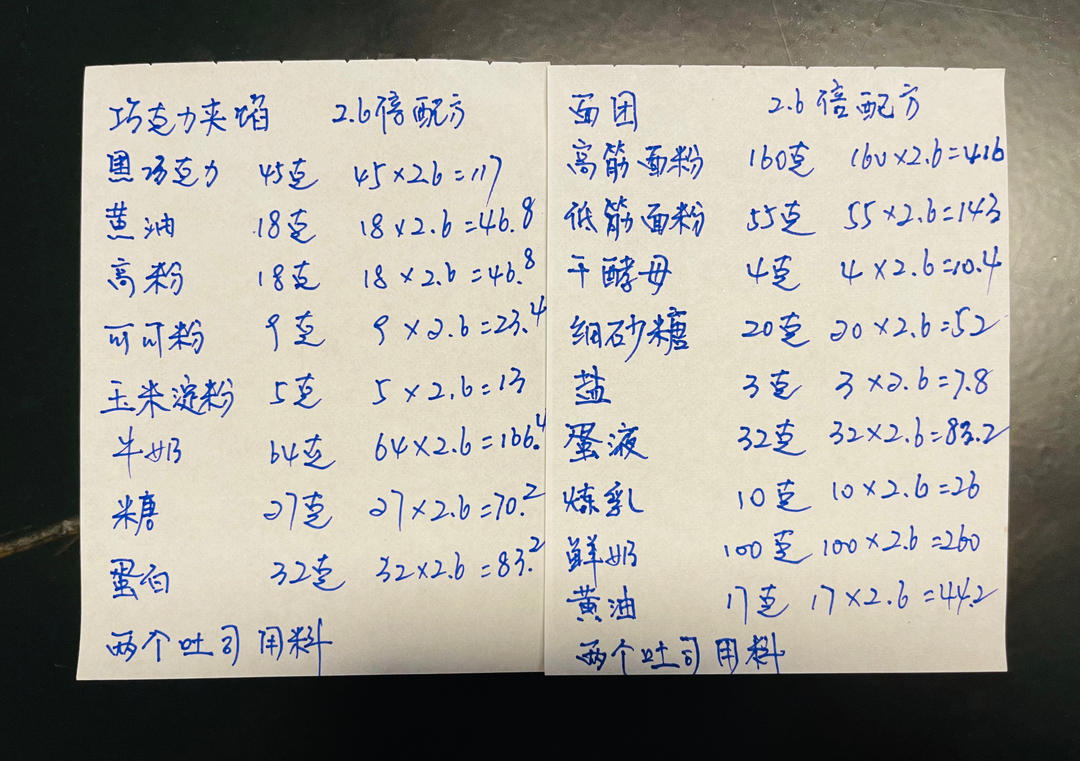 巧克力夹馅 2.6倍配方
黑巧克力 45克 45×2.6=117
黄油 18克 18×2.6=46.8
高粉 18克 18×2.6=46.8
可可粉 9克 9×2.6=23.4
玉米淀粉 5克 5×2.6=13
牛奶 64克 64×2.6=166.4
糖 27克 27×2.6=70.2
蛋白 32克 32×2.6=83.2
两个吐司用料
面团 2.6倍配方
高筋面粉 160克 160×2.6=416
低筋面粉 55克 55×2.6=143
干酵母 4克 4×2.6=10.4
细砂糖 20克 20×2.6=52
盐 3克 3×2.6=7.8
蛋液 32克 32×2.6=83.2
炼乳 10克 10×2.6=26
鲜奶 100克 100×2.6=260
黄油 17克 17×2.6=44.2
两个吐司用料